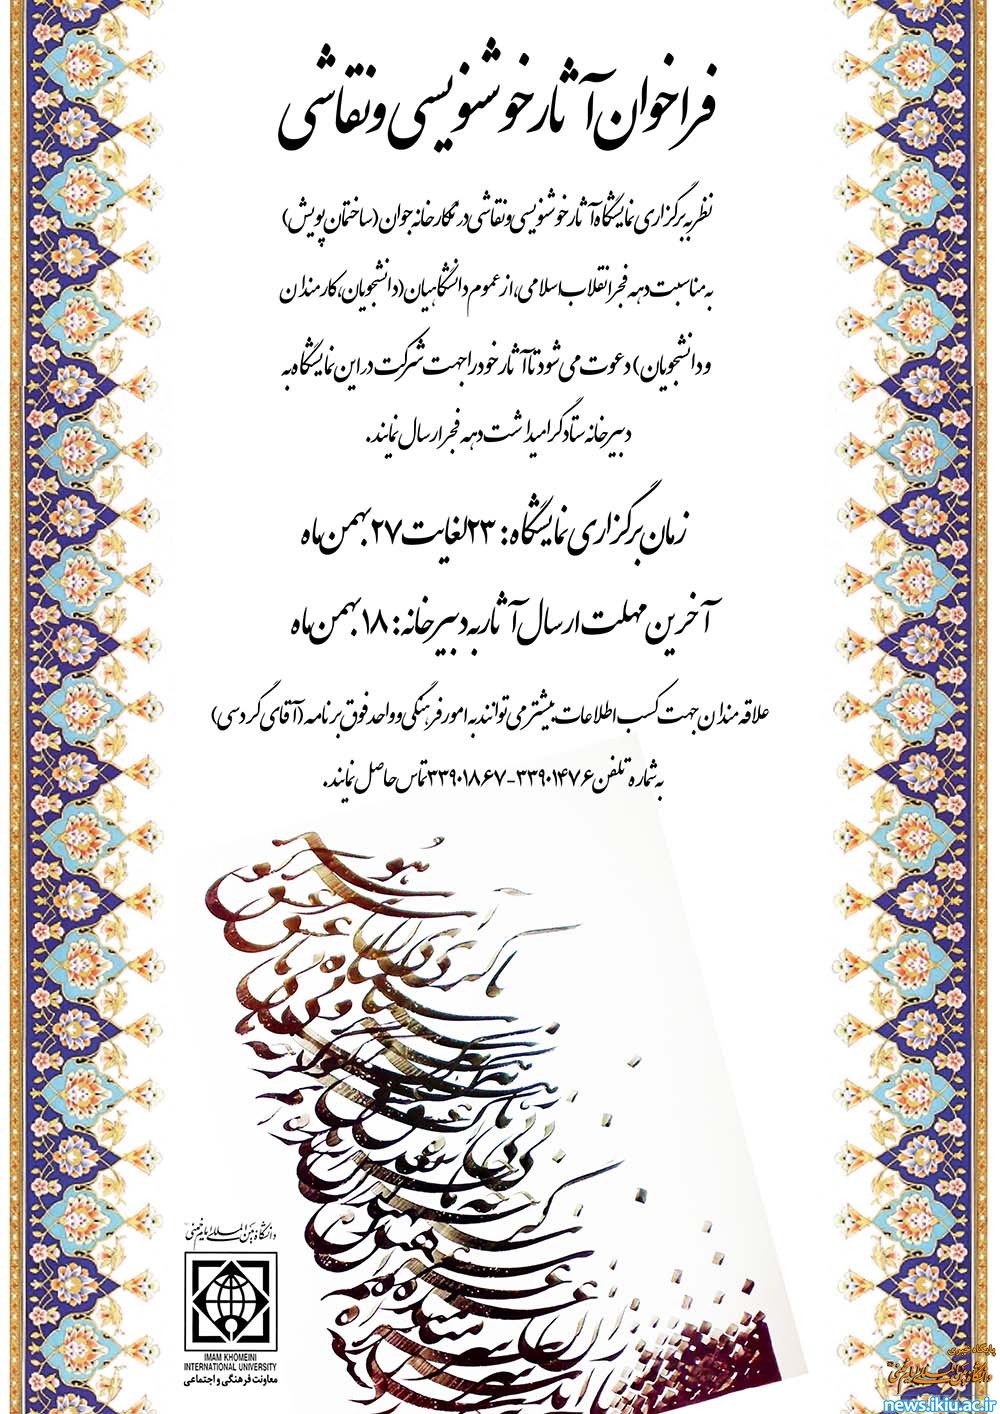 فراخوان آثار خوشنویسی و نقاشی
نظر به برگزاری نمایشگاه آثار خوشنویسی و نقاشی در نگارخانه جوان (ساختمان پویش)
به مناسبت دهه فجر انقلاب اسلامی، از عموم دانشگاهیان (دانشجویان، کارمندان
و دانشجویان) دعوت می شود تا آثار خود را جهت شرکت در این نمایشگاه به
دبیرخانه ستاد گرامیداشت دهه فجر ارسال نمایند.
زمان برگزاری نمایشگاه: ۲۳ لغایت ۲۷ بهمن ماه
آخرین مهلت ارسال آثار به دبیرخانه: ۱۸ بهمن ماه
علاقه مندان جهت کسب اطلاعات بیشتر می توانند به امور فرهنگی و واحد فوق برنامه (آقای گردسی)
به شماره تلفن ۳۳۹۰۱۴۷۶-۳۳۹۰۱۸۶۷ تماس حاصل نمایند.
دانشگاه بین المللی امام خمینی
IMAM KHOMEINI
INTERNATIONAL UNIVERSITY
معاونت فرهنگی و اجتماعی
پایگاه خبری
دانشگاه بین المللی امام خمینی
news.ikiu.ac.ir